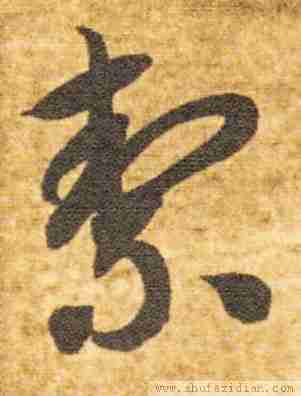 絜
www.shufazidian.com